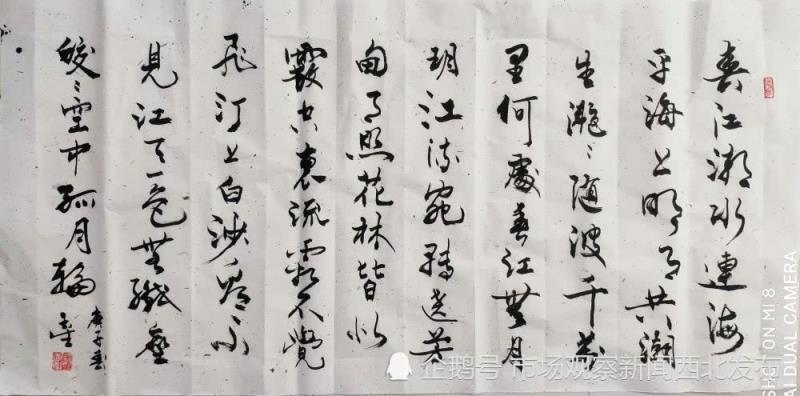 春江潮水連海
平海上明月共潮
生灧〻随波千萬
里何處春江無月
明江流宛轉遶芳
甸月照花林皆似
霰空裏流霜不覺
飛汀上白沙看不
見江天一色無纖塵
皎〻空中孤月輪
庚子春
企鹅号 市场观察新闻西北发布
SHOT ON MI 8
AI DUAL CAMERA